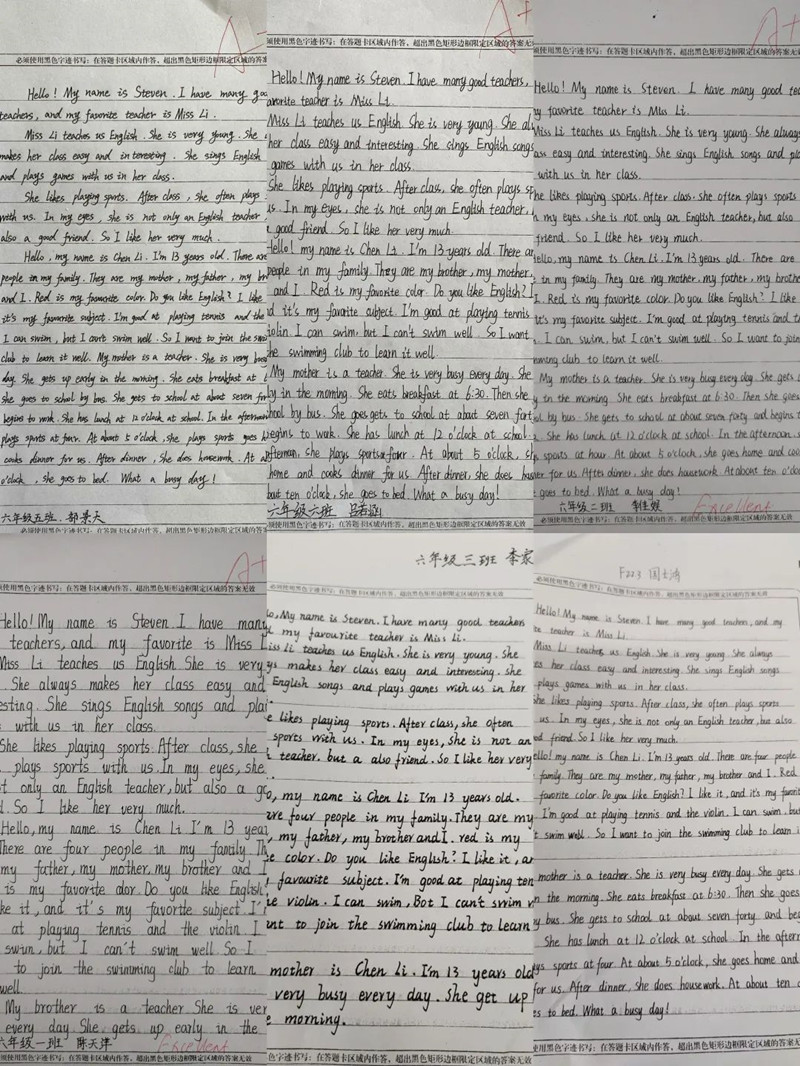 A+
必须使用黑色字迹书写：在答题卡区域内作答，超出黑色矩形边框限定区域的答案
Hello! My name is Steven. I have many
teachers, and my favorite teacher is Miss Li.
Miss Li teaches us English. She is very young. She
makes her class easy and interesting. She sings English
and plays games with us in her class.
She likes playing sports. After class, she often plays
with us. In my eyes, she is not only an English teacher
also a good friend. So I like her very much.
Hello, my name is Chen Li. I'm 13 years old. There are
people in my family. They are my mother, my father, my
and I. Red is my favourite color. Do you like English? I like
it's my favourite subject. I'm good at playing tennis and the
I can swim, but I can't swim well. So I want to join the
club to learn it well. My mother is a teacher. She is very busy
day. She gets up early in the morning. She eats breakfast at
she goes to school by bus. She gets to school at about seven
begins to work. She has lunch at 12 o'clock at school. In the afternoon
plays sports at four. At about 5 o'clock, she plays sports goes
cooks dinner for us. After dinner, she does housework. At
o'clock, she goes to bed. What a busy day!
六年级五班. 郜景天
必须使用黑色字迹书写：在答题卡区域内作答，超出黑色矩形边框限定区域的答案无效
A+
须使用黑色字迹书写：在答题卡区域内作答，超出黑色矩形边框限定区域的答案无效
Hello! My name is Steven. I have many good teachers,
avorite teacher is Miss Li.
Miss Li teaches us English. She is very young. She
her class easy and interesting. She sings English songs
games with us in her class.
She likes playing sports. After class, she often plays
us. In my eyes, she is not only an English teacher,
good friend. So I like her very much.
Hello! my name is Chen Li. I'm 13 years old. There
people in my family. They are my brother, my mother,
and I Red is my favorite color. Do you like English?
d it's my favorite subject. I'm good at playing tennis
iolin. I can swim, but I can't swim well. So I want
he swimming club to learn it well.
My mother is a teacher. She is very busy every day. She
ly in the morning. She eats breakfast at 6:30. Then she
hool by bus. She goes gets to school at about seven
begins to work. She has lunch at 12 o'clock at school.
afternoon, she plays sports four. At about 5 o'clock,
home and cooks dinner for us. After dinner, she does
out ten o'clock, she goes to bed. What a busy day!
六年级六班
须使用黑色字迹书写：在答题卡区域内作答，超出黑色矩形边框限定区域的答案无效
A+
须使用黑色字迹书写：在答题卡区域内作答，超出黑色矩形边框限定区域的答案无效
Hello! My name is Steven. I have many good
y favorite teacher is Miss Li.
Miss Li teaches us English. She is very young. She always
ass easy and interesting. She sings English songs and
with us in her class.
he likes playing sports. After class. she often plays sports
my eyes, she is not only an English teacher, but also
friend. So I like her very much.
ello, my name is Chen Li. I'm 13 years old. There are
in my family. They are my mother, my father, my
I. Red is my favorite color. Do you like English? I like
it's my favorite subject. I'm good at playing tennis and
I can swim, but I can't swim well. So I want to join
mming club to learn it well.
My mother is a teacher. She is very busy every day. She gets
y in the morning. She eats breakfast at 6:30. Then she goes
ol by bus. She gets to school at about seven forty and begins
She has lunch at 12 o'clock at school. In the afternoon.
sports at hour. At about 5 o'clock, she goes home and
ner for us. After dinner, she does housework. At about ten
goes to bed. What a busy day!
六年级二班
Excellent
须使用黑色字迹书写：在答题卡区域内作答，超出黑色矩形边框限定区域的答案无效
A+
须使用黑色字迹书写：在答题卡区域内作答，超出黑色矩形边框限定区域的答案无效
Hello! My name is Steven. I have many
teachers, and my favorite is Miss
Miss Li teaches us English. She is very
. She always makes her class easy and
esting. She sings English songs and
with us in her class.
She likes playing sports. After class, she
plays sports with us. In my eyes, she
t only an English teacher, but also a
d. So I like her very much.
Hello, my name is Chen Li I'm 13
There are four people in my family.
my father, my mother, my brother and I
is my favorite Do you like English
ke it, and it's my favorite subject.
at playing tennis and the violin. I
swim, but I can't swim well. So I
to join the swimming club to learn
well.
My brother is a teacher. She is
every day. She gets up early in the
六年级一班 陈天津
Excellent
须使用黑色字迹书写：在答题卡区域内作答，超出黑色矩形边框限定区域的答案无效
六年级三班 李家
必须使用黑色字迹书写：在答题卡区域内作答，超出黑色矩形边框限定区域的答案无效
lo, My name is Steven. I have many good teachers
d my favourite teacher is Miss Li.
iss Li teaches us English. She is very young. She
ys makes her class easy and interesting. She
English songs and plays games with us in her
e likes playing sports. After class, she often
sports with us. In my eyes, She is not an
teacher. but a also friend. So I like her very
o, my name is Chen Li I'm 13 years old.
are four people in my family. They are my
, my father, my brother and I. red is my
e color. Do you like English? I like it,
favourite subject. I'm good at playing
e violin. I can swim, Bot I can't swim
nt to join the swimming club to learn
mother is Chen Li. I'm 13 years old
very busy every day. She get up
e morning.
色字迹书写：在答题卡区域内作答，超出黑色矩形边框限定区域的答案无效
必须使用黑色字迹书写：在答题卡区域内作答，超出黑色矩形边框限定区域的答案无效
Hello! My name is Steven. I have many good teachers, and my
te teacher is Miss Li.
Miss Li teaches us English. She is very young. She always
es her class easy and interesting. She sings English songs
plays games with us in her class.
She likes playing sports. After class, she often plays sports
us. In my eyes, she is not only an English teacher, but also
od friend. So I like her very much.
ello! my name is Chen Li. I'm 13 years old. There are four people
family. They are my mother, my father, my brother and I. Red
favorite color. Do you like English? I like it, and it's my
I'm good at playing tennis and the violin. I can swim,
t swim well. So I want to join the swimming club to learn
mother is a teacher. She is very busy every day. She gets
n the morning. She eats breakfast at 6:30. Then she goes
y bus. She gets to school at about seven forty, and
She has lunch at 12 o'clock at school. In the
ys sports at four. At about 5 o'clock, she goes home and
for us. After dinner, she does housework. At about ten
es to bed. What a busy day!
使用黑色字迹书写：在答题卡区域内作答，超出黑色矩形边框限定区域的答案无效